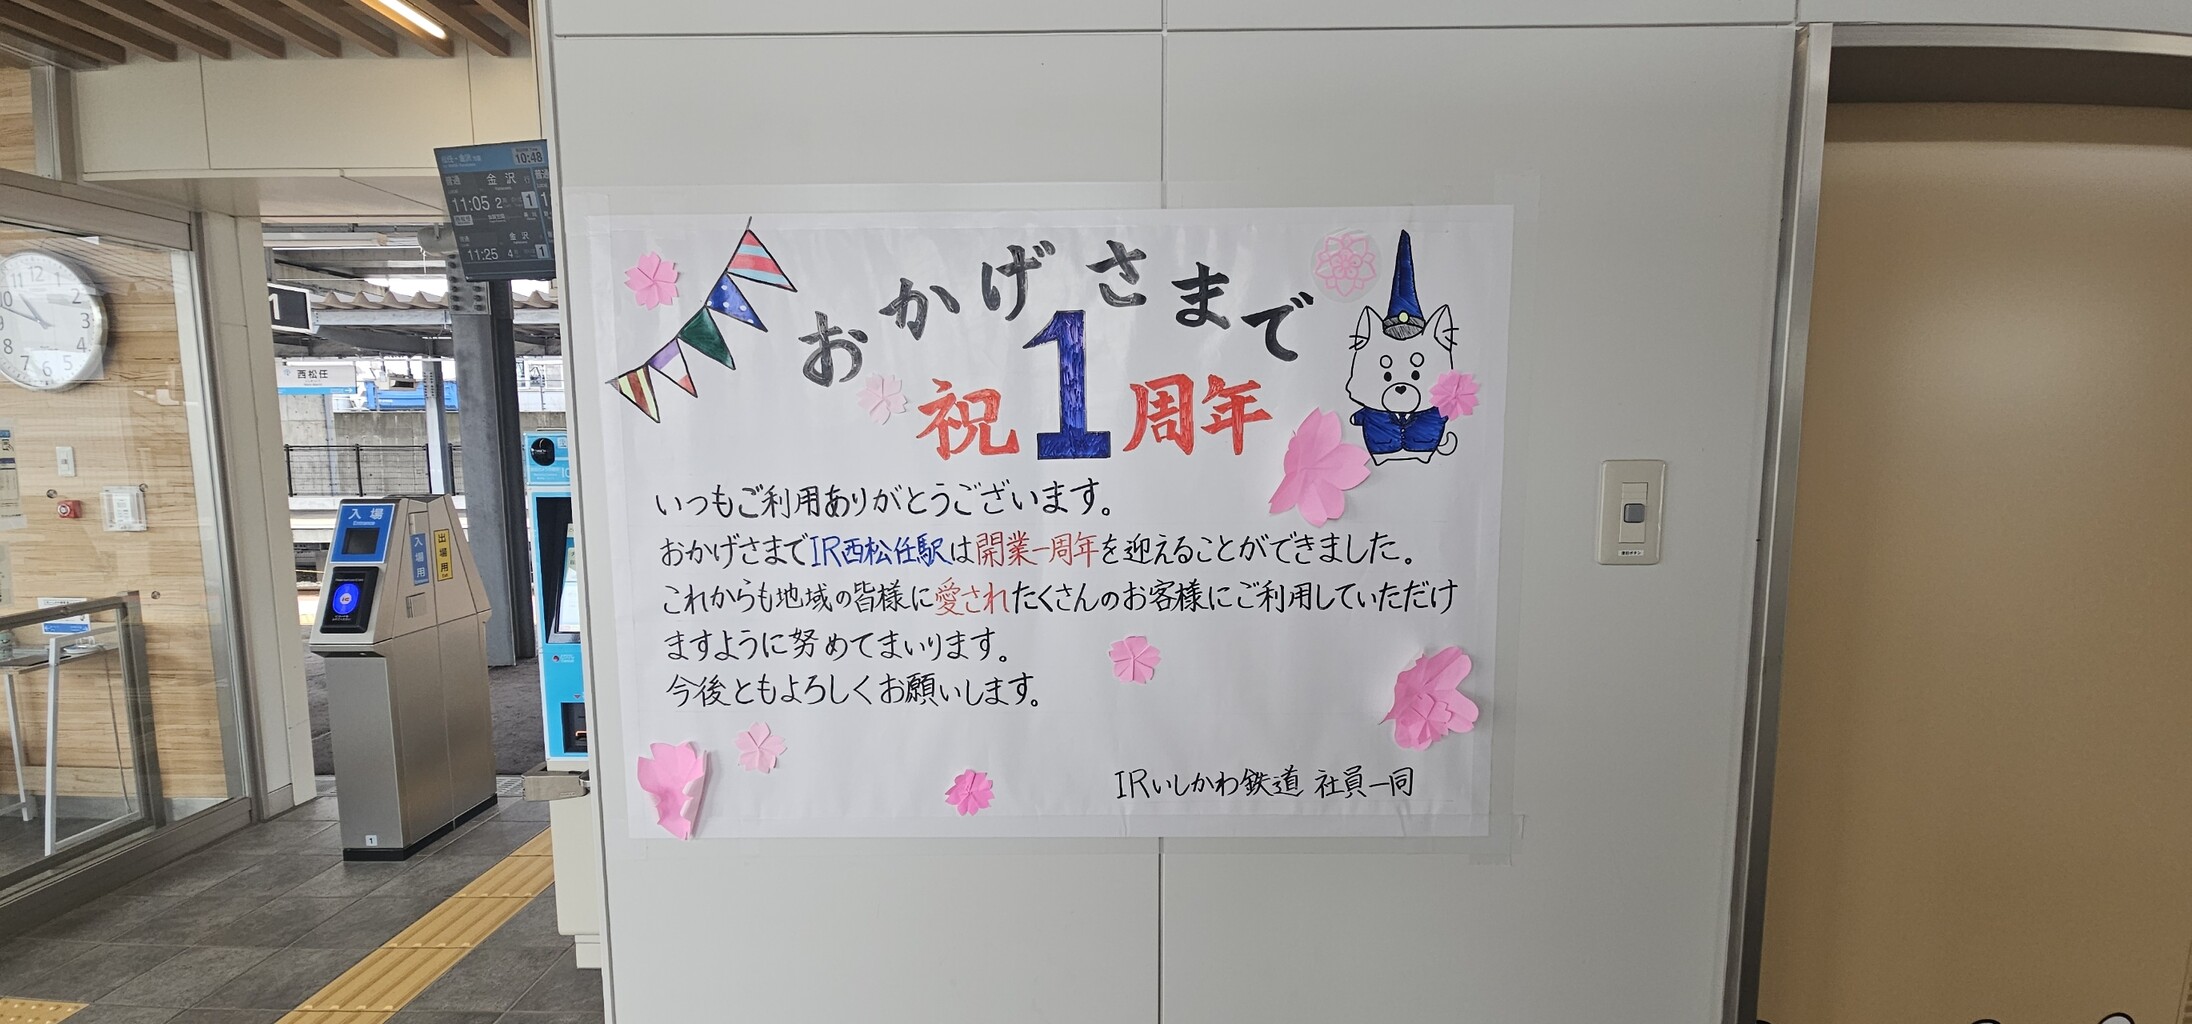 おかげさまで
祝1周年
いつもご利用ありがとうございます。
おかげさまでIR西松任駅は開業一周年を迎えることができました。
これからも地域の皆様に愛されたくさんのお客様にご利用していただけ
ますように努めてまいります。
今後ともよろしくお願いします。
IRいしかわ鉄道 社員一同
10:48
普通 金沢 行
11:05 2 1
金沢
11:25 4 1
1
西松任
入場
Entrance
入場用
出場用
1
12
11
1
10
2
9
3
8
4
7
6
5